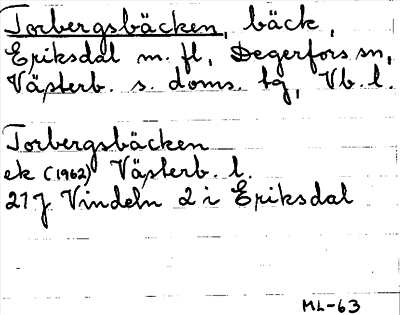 Torbergsbäcken, bäck,
Eriksdal m. fl, Degerfors sn,
Västerb. s. doms. tg, Vb. l.
Torbergsbäcken
ek (1962) Västerb. l.
21 J Vindeln 2 i Eriksdal
ML-63